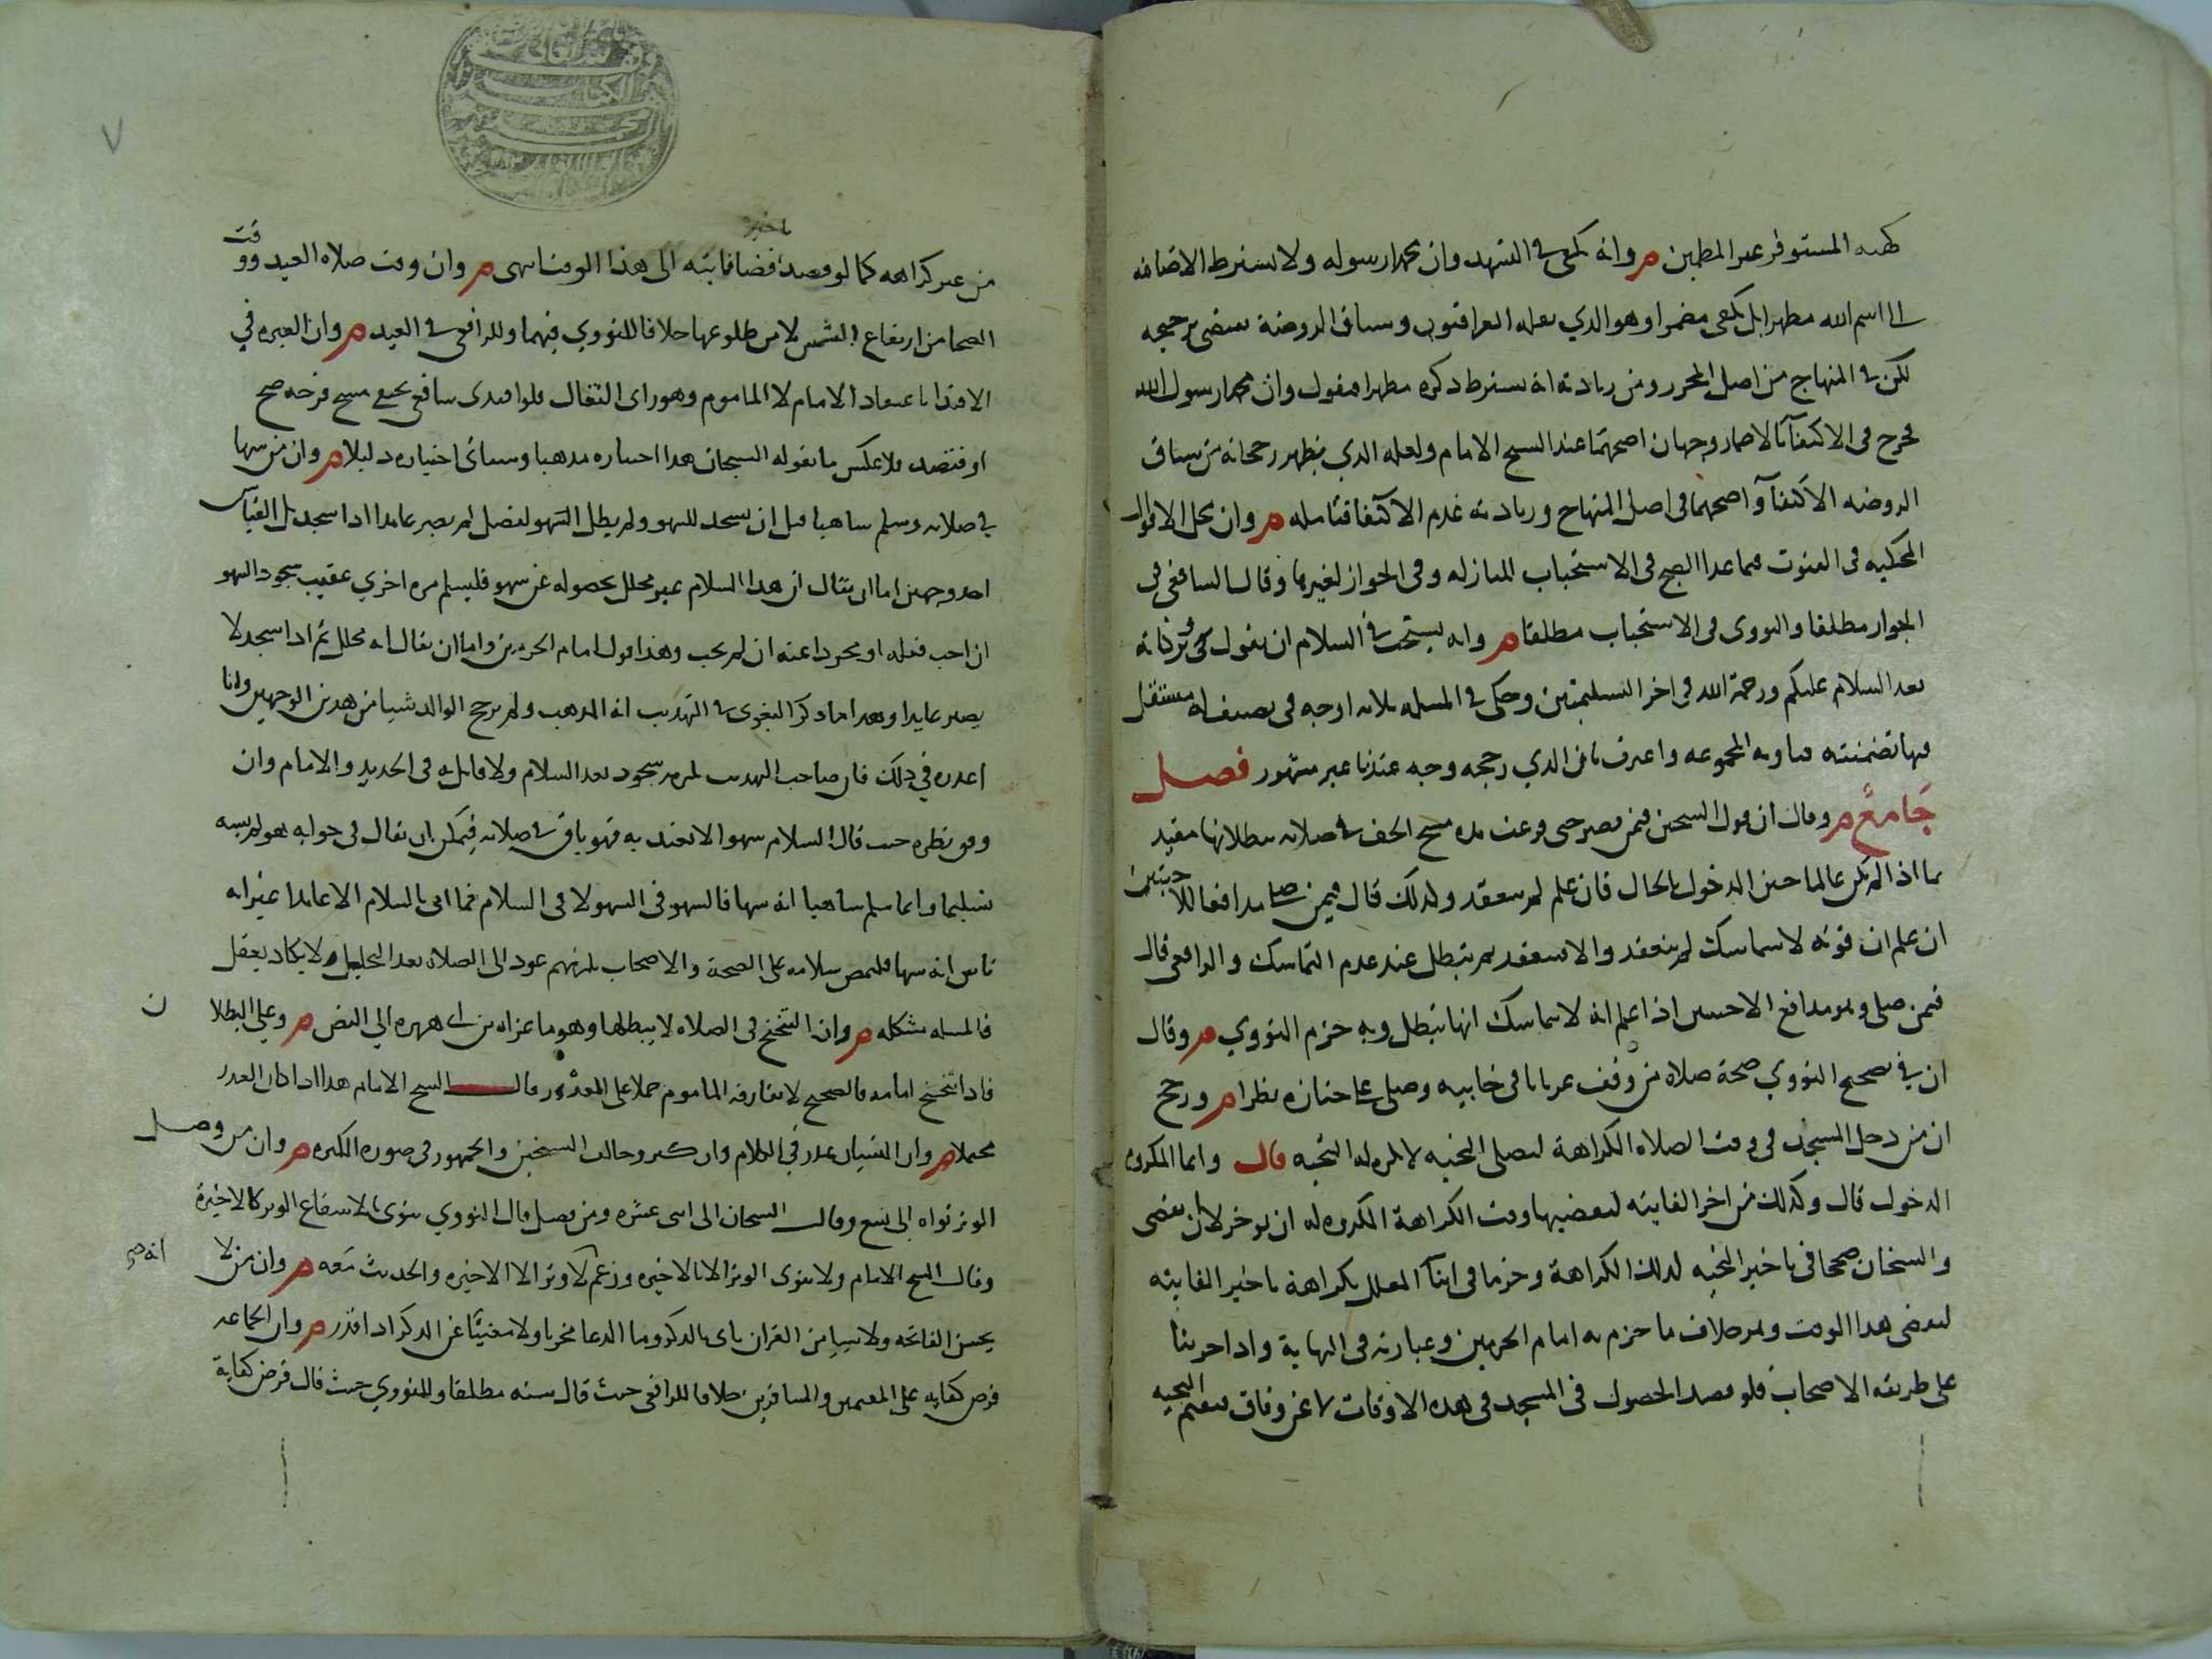 المستوفز عبر المطين م وانه يكفي في التشهد وان محمدا رسوله ولا يشترط الاضافه
الى اسم الله مظهرا بل يكفى مضمرا وهو الذي نقله العراقيون وسياق الروضة يقتضي ترجيحه
لكن في المنهاج من اصل المحرر ومن زيادته انه يشترط ذكره مظهرا فيقول وان محمدا رسول الله
فخرج في الاكتفآ بالاضمار وجهان اصحهما عند الشيخ الامام ولعله الذي يظهر رجحانه من سياق
الروضه الاكتفآ واصحهما في اصل المنهاج وزيادته عدم الاكتفا فتامله م وان محل الاقوال
المحكيه في القنوت فيما عدا الصبح في الاستحباب للنازله وفي الجواز لغيرها وقال الرافعي في
الجواز مطلقا والنووى في الاستحباب مطلقا م وانه يستحب في السلام ان يقول وبركاته
بعد السلام عليكم ورحمة الله في اخر التسليمتين وحكى في المسله ثلاثه اوجه في تصنيف له مستقل
فيها تضمنته فتاويه المجموعه واعترف بان الذي رجحه وجه عندنا غير مشهور فصل
جامع م وقال ان قول الشيخين فيمن قصر حتى فرغت مدة مسح الخف في صلاته ببطلانها مقيد
بما اذا لم يكن عالما حين الدخول بالحال فان علم لم تنعقد ولذلك قال فيمن صلى مدافعا للاخبثين
ان علم ان قوته لا تتماسك لم ينعقد والا تنعقد ثم تبطل عند عدم التماسك والرافعي قال
فيمن صلى وهو مدافع الاخبثين اذا علم انه لا يتماسك انها تبطل وبه جزم النووي م وقال
ان في تصحيح النووي صحة صلاة من وقف عريانا في خابيه وصلى على جنازه نظرا م ورجح
ان من دخل المسجد في وقت الصلاه الكراهة ليصلى التحيه لا تكره له التحيه قال وانما المكروه
الدخول قال وكذلك من اخر الفايته ليقضيها وقت الكراهة المكروه له ان يوخر لا ان يقضى
والشيخان صححا في تاخير التحيه لذلك الكراهة وجزما في اثنآ المعلل بكراهة تاخير الفايته
ليقضى هذا الوقت وهو خلاف ما جزم به امام الحرمين وعبارته في النهاية واذا جرينا
على طريقه الاصحاب فلو قصد الحصول في المسجد في هذه الاوقات لا عن وفاق فيقيم التحيه
من غير كراهه كما لو قصد تاخير قضا فايته الى هذا الوقت انتهى م وان وقت صلاه العيد ووقت
الضحا من ارتفاع الشمس لا من طلوعها خلافا للنووي فيهما وللرافعي في العيد م وان العبره في
الاقتدا باعتقاد الامام لا الماموم وهو راى القفال فلو اقتدى شافعي بحنفي مسح فرجه صح
او فتصد فلا عكس ما يقوله الشيخان هذا اختياره مذهبا وسياتي اختياره دليلا م وان من سها
في صلاته وسلم ساهيا قبل ان يسجد للسهو ولم يطل الفصل لم يصر عايدا اذا سجد بل القياس
احد وجهين اما ان يقال ان هذا السلام غير محلل لحصوله عن سهو فليسلم مره اخري عقيب سجود السهو
ان احب فعله او مجردا عنه ان لم يحب وهذا قول امام الحرمين واما ان يقال انه محلل ثم اذا سجد لا
يصير عايدا وهذا ما ذكر البغوى في التهذيب انه المذهب ولم يرجح الوالد شيا من هذين الوجهين وانا
اعذره في ذلك فان صاحب التهذيب لم يرد سجود بعد السلام ولا قايل به في الجديد والامام وان
وفى نظره حيث قال السلام سهوا لا يعتد به فهو باق في صلاته فيمكن ان يقال في جوابه هو لم ينسه
تسليما وانما سلم ساهيا انه سها فالسهو في السهو لا في السلام فما اتى بالسلام الا عامدا غير انه
ناس انه سها فليمض سلامه على الصحة والاصحاب يلزمهم عود الى الصلاه بعد التحليل ولا يكاد يعقل
فالمسله مشكله م وان التنحنح في الصلاه لا يبطلها وهو ما عزاه بن ابي هريره الي النص م وعلى البطلان
فاذا تنحنح امامه فالصحيح لا يفارقه الماموم حملا على العذر وقال الشيخ الامام هذا اذا كان العذر
محتملا م وان النسيان عذر في الكلام وان كثر وخالف الشيخين والجمهور في صوره الكثره م وان من وصل
الوتر نواه الى تسع وقال الشيخان الى احدى عشره ومن فصل قال النووي ينوى بالاشفاع الوتر كالاخيرة
وقال الشيخ الامام ولا ينوى الوتر الا بالاخيره وزعم لا وتر الا الاخيره والحديث معه م وان من لا
يحسن الفاتحه ولا شيا من القران ياتى بالذكر وما الدعا مجزيا ولا مغنيا عن الذكر اذا قدر م وان الجماعه
فرض كفايه على المقيمين والمسافرين خلافا للرافعي حيث قال سنه مطلقا وللنووي حيث قال فرض كفاية